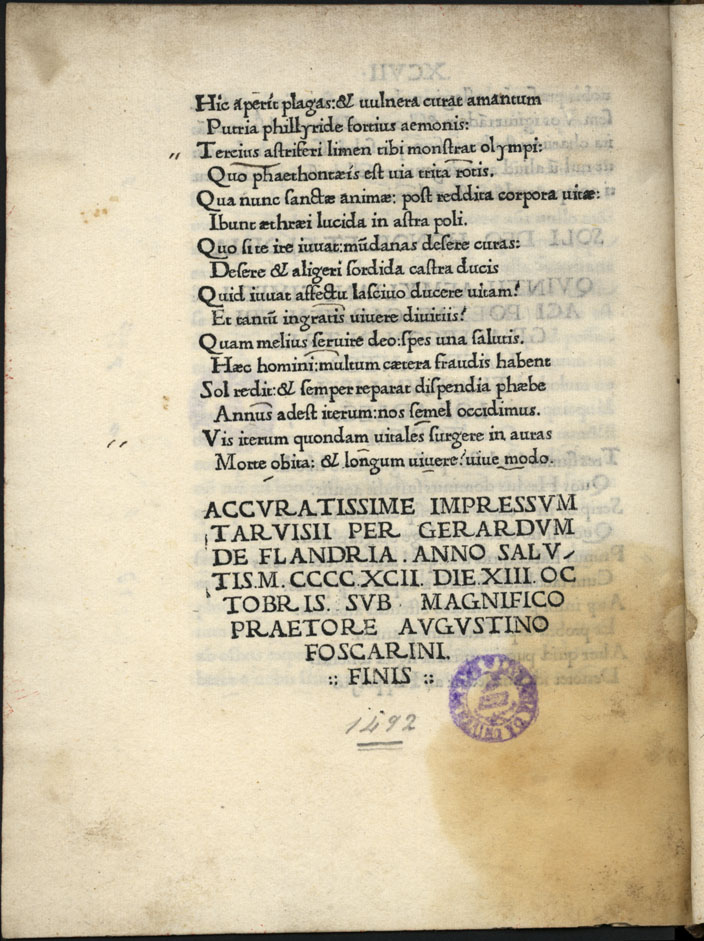 Hic aperit plagas:& uulnera curat amantum
Putria phillyride fortius aemonis:
Tercius astriferi limen tibi monstrat olympi:
Quo phaethontæis est uia trita rotis.
Qua nunc sanctæ animæ: post reddita corpora uitæ:
Ibunt æthræi lucida in astra poli.
Quo si te ire iuuat:mūdanas desere curas:
Desere & aligeri sordida castra ducis
Quid iuuat affectu lasciuo ducere uitam?
Et tantū ingratis uiuere diuitiis?
Quam melius seruire deo:spes una salutis.
Hæc homini:multum cætera fraudis habent
Sol redit:& semper reparat dispendia phæbe
Annus adest iterum:nos semel occidimus.
Vis iterum quondam uitales surgere in auras
Morte obita: & longum uiuere?uiue modo.
ACCVRATISSIME IMPRESSVM
TARVISII PER GERARDVM
DE FLANDRIA . ANNO SALV-
TIS.M.CCCC.XCII. DIE.XIII.OC
TOBRIS. SVB MAGNIFICO
PRAETORE AVGVSTINO
FOSCARINI.
:: FINIS ::
1492